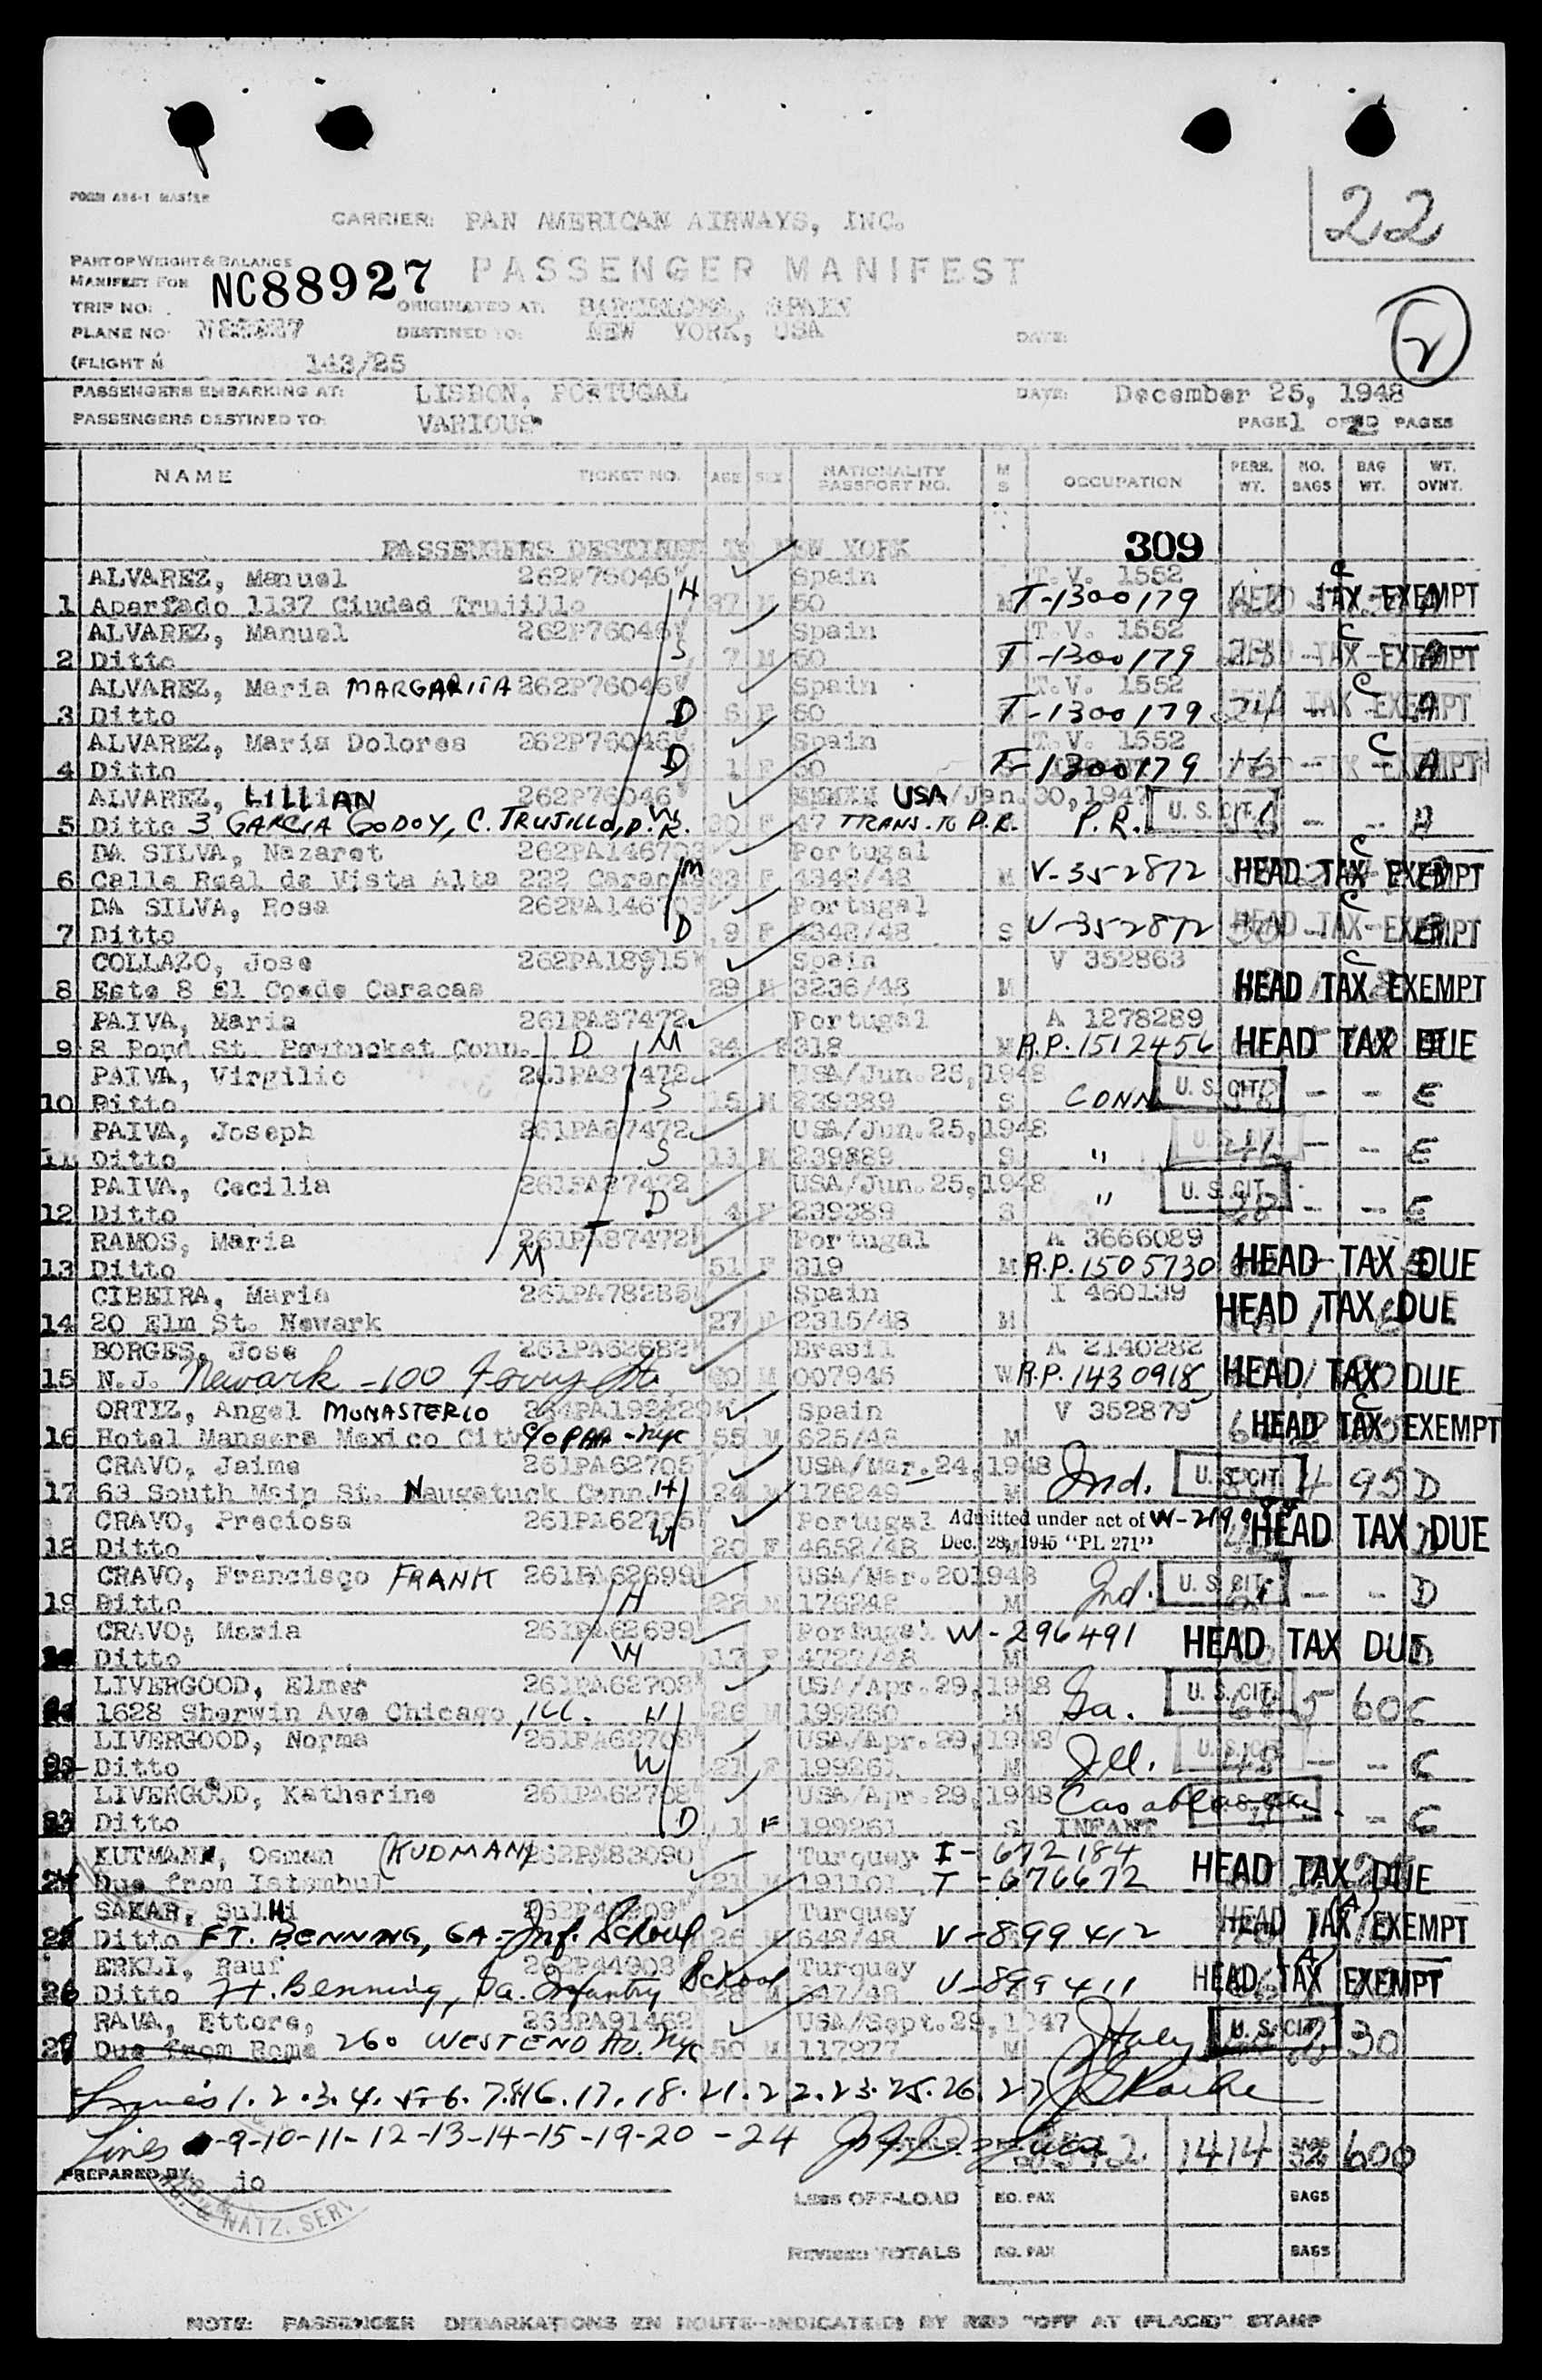 22
FORM 436-1 MASTER
CARRIER: PAN AMERICAN AIRWAYS, INC.
PART OF WEIGHT & BALANCE
MANIFEST FOR NC88927 PASSENGER MANIFEST
TRIP NO: ORIGINATED AT: BARCELONA, SPAIN
PLANE NO DESTINED TO: NEW YORK, USA DATE:
2
(FLIGHT 143/25
PASSENGERS EMBARKING AT: LISBON, PORTUGAL DATE: December 25, 1948
PASSENGERS DESTINED TO: VARIOUS PAGE 1 OF 2 PAGES
NAME TICKET NO. AGE SEX NATIONALITY PASSPORT NO. M S OCCUPATION PERS. WT. NO. BAGS BAG WT. WT. OVWT.
PASSENGERS DESTINED TO NEW YORK 309
ALVAREZ, Manuel 262P76046 Spain T.V. 1552 C
1 Apartado 1137 Ciudad Trujillo H 37 M 50 M T-1300179 HEAD TAX EXEMPT
ALVAREZ, Manuel 262P76046 Spain T.V. 1552 C
2 Ditto S 7 M 50 T-1300179 TAX EXEMPT
ALVAREZ, Maria MARGARITA 262P76046 Spain T.V. 1552 C
3 Ditto D 6 F 50 T-1300179 24 - TAX EXEMPT A
ALVAREZ, Maria Dolores 262P76046 Spain T.V. 1552 C
4 Ditto D 1 F 50 T-1300179 EXEMPT A
ALVAREZ, LILLIAN 262P76046 USA/Jan. 30, 1947
5 Ditto 3 GARCIA GODOY, C. TRUJILLO, D.R. W 30 F 47 TRANS. TO P.R. P.R. U. S. CIT. - - A
DA SILVA, Nazaret 262PA146703 Portugal C
6 Calle Real de Vista Alta 222 Caracas M 33 F 4348/48 M V-352872 HEAD TAX EXEMPT
DA SILVA, Rosa 262PA146703 Portugal C
7 Ditto D 9 F 4348/48 S V-352872 HEAD TAX EXEMPT
COLLAZO, Jose 262PA18915 Spain V 352863 C
8 Este 8 El Conde Caracas 29 M 3236/48 M HEAD TAX EXEMPT
PAIVA, Maria 261PA87472 Portugal A 1278289
9 8 Pond St. Pawtucket Conn. D M 34 F 318 M R.P.1512456 HEAD TAX DUE
PAIVA, Virgilio 261PA87472 USA/Jun. 25, 1948
10 Ditto S 15 M 239389 S CONN U. S. CIT. - - E
PAIVA, Joseph 261PA87472 USA/Jun. 25, 1948
11 Ditto S 11 M 239389 S " - - E
PAIVA, Cecilia 261PA87472 USA/Jun. 25, 1948
12 Ditto D 4 F 239389 S " U. S. CIT. - - E
RAMOS, Maria 261PA87472 Portugal A 3666089
13 Ditto M 51 F 319 M R.P.1505730 HEAD TAX DUE
CIBEIRA, Maria 261PA78236 Spain I 460139
14 20 Elm St. Newark 27 F 2315/48 M HEAD TAX DUE
BORGES, Jose 261PA62682 Brasil A 2140282
15 N.J. Newark -100 Ferry St. 60 M 007945 W R.P.1430918 HEAD TAX DUE
ORTIZ, Angel MONASTERIO Spain V 352879 C
16 Hotel Mansera Mexico City c/o PAA - nyc 55 M 625/48 M HEAD TAX EXEMPT
CRAVO, Jaime 261PA62705 USA/Mar. 24, 1948
17 63 South Main St. Naugatuck Conn. H 24 M 176249 M Ind. U. S. CIT. 4 95 D
CRAVO, Preciosa 261PA62705 Portugal Admitted under act of
18 Ditto W 20 F 4652/48 Dec. 28, 1945 "PL 271" HEAD TAX DUE
CRAVO, Francisco FRANK 261PA62699 USA/Mar. 20 1948
19 Ditto H 22 M 176248 M Ind. U. S. CIT. - - D
CRAVO, Maria 261PA62699 Portugal W-296491 HEAD TAX DUE
20 Ditto W 17 F 4727/48 M
LIVERGOOD, Elmer 261PA62708 USA/Apr. 29, 1948
21 1628 Sherwin Ave Chicago, Ill. H 26 M 199260 M Ia. U. S. CIT. 5 60 C
LIVERGOOD, Norma 261PA62708 USA/Apr. 29, 1948
22 Ditto W 21 F 199261 M Ill. - - C
LIVERGOOD, Katherine 261PA62708 USA/Apr. 29, 1948 Casablanca
23 Ditto D 1 F 199261 S INFANT - C
KUTMAN, Osman (KUDMAN) 262PA83090 Turquey I-672184
24 Due from Istambul 21 M 191101 T-676672 HEAD TAX DUE
SAKAR, Sulhi Turquey (A)
25 Ditto FT. BENNING, GA - Inf. School 26 M 648/48 V-899412 HEAD TAX EXEMPT
ERKLI, Rauf 262P44908 Turquey (A)
26 Ditto Ft. Benning, Ga. Infantry School 28 M 647/48 V-899411 HEAD TAX EXEMPT
RAVA, Ettore, 263PA91462 USA/Sept. 29, 1947
27 Due from Rome 260 WESTEND AV. NYC 50 M 117977 M Italy U. S. CIT. 30
Lines 1. 2. 3. 4. 5. 6. 7. 8. 16. 17. 18. 21. 22. 23. 25. 26. 27
Lines -9-10-11-12-13-14-15-19-20-24 TOTALS 1414 600
PREPARED BY jo
& NATZ. SERV
LESS OFF-LOAD NO. PAX BAGS
REVISED TOTALS NO. PAX BAGS
NOTE: PASSENGER DEBARKATIONS EN ROUTE-INDICATED BY RED "OFF AT (PLACE)" STAMP